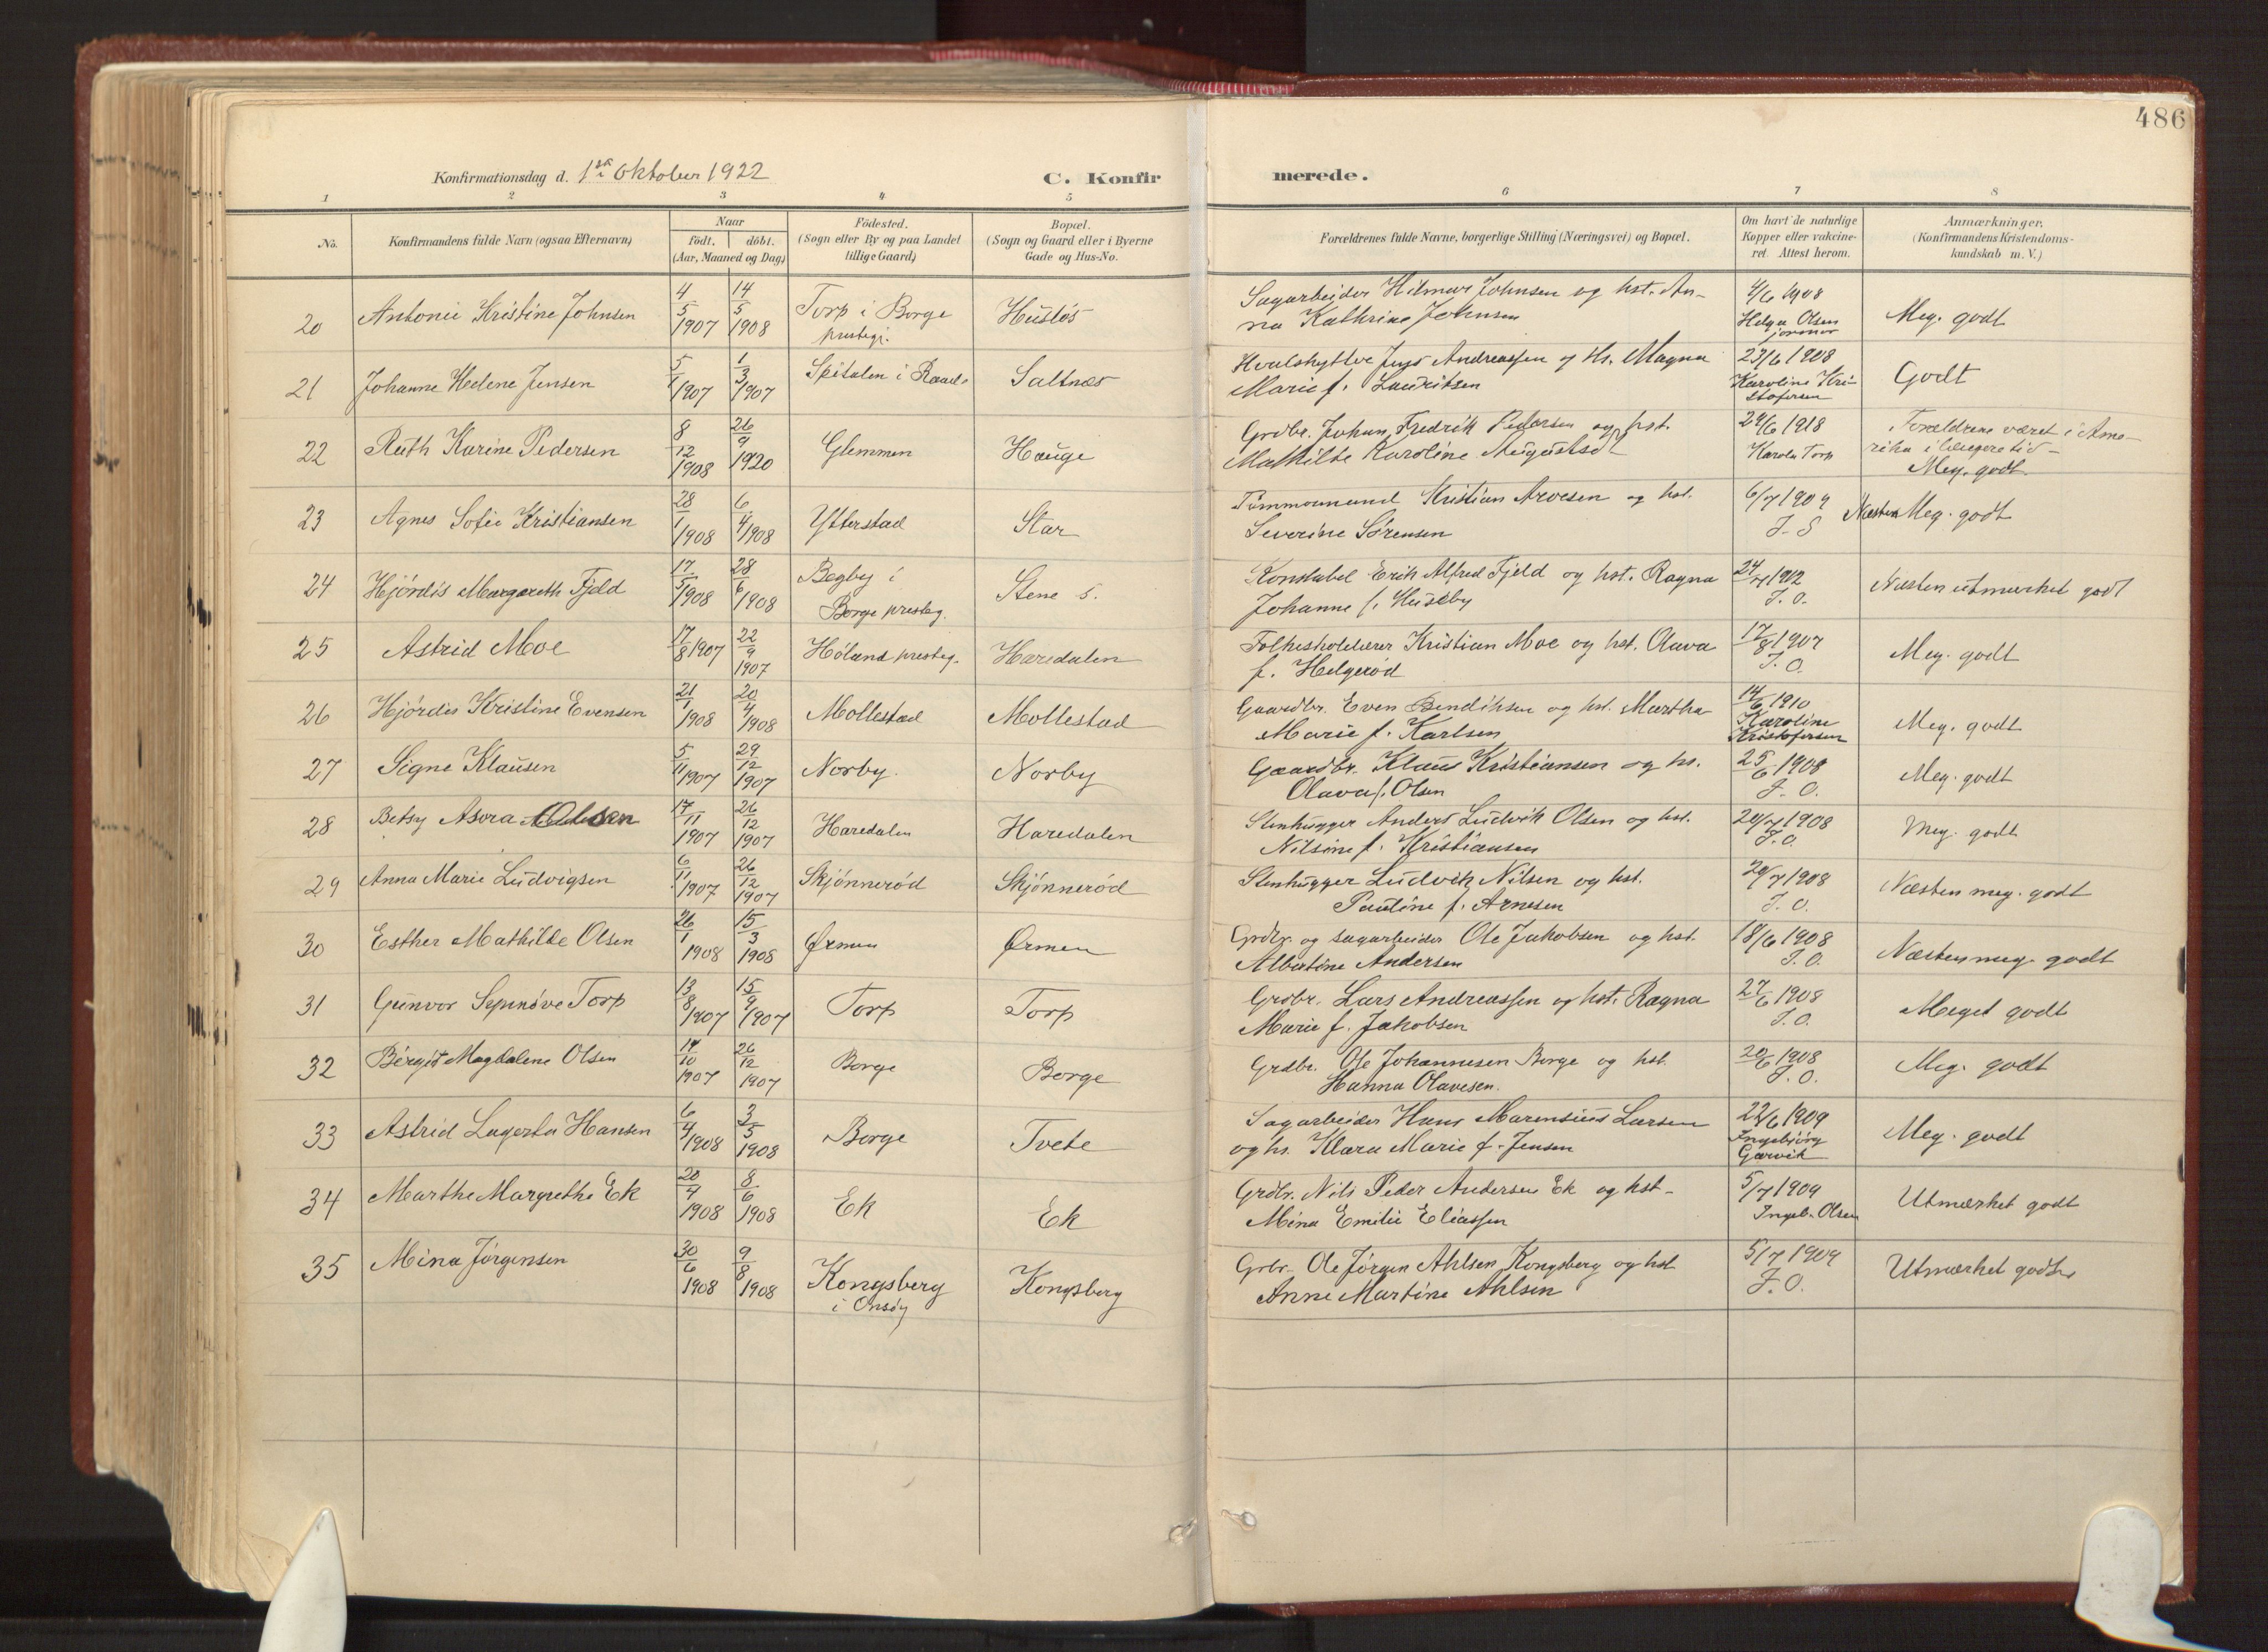 486
Konfirmationsdag d. 1ste Oktober 1922
C. Konfir
merede.
1 2 3 4 5 6 7 8
No.
Konfirmandens fulde Navn (ogsaa Efternavn)
Naar
födt. döbt.
(Aar, Maaned og Dag)
Födested.
(Sogn eller By og paa Landet
tillige Gaard)
Bopæl.
(Sogn og Gaard eller i Byerne
Gade og Hus-No.
Forældrenes fulde Navne, borgerlige Stilling (Næringsvei) og Bopæl.
Om havt de naturlige
Kopper eller vakcine-
ret. Attest herom.
Anmærkninger.
(Konfirmandens Kristendoms-
kundskab m. V.)
20 Antonie Kristine Johnsen 4/5 1907 14/5 1908 Torp i Borge
prestegj. Hustös
Sagarbeider Hilmar Johnsen og hst. An-
na Kathrine Johnsen
4/6 1908
Helga Olsen
jormor
Meg. godt
21 Johanne Helene Jensen 5/1 1907 1/3 1907 Spitalen i Raade Saltnæs
Hvalskytter Jens Andreassen og Hs. Magna
Marie f. Lauritsen
23/6 1908
Karoline Kri-
stofersen
Godt
22 Ruth Karine Pedersen 8/12 1908 26/9 1920 Glemmen Hauge
Grdbr. Johan Fredrik Pedersen og hst.
Mathilde Karoline Augustsd
24/6 1918
Karola Torp
Forældrene været i Ame-
rika i længere tid -
Meg. godt
23 Agnes Sofie Kristiansen 28/1 1908 6/4 1908 Ytterstad Star
Tømmermand Kristian Arvesen og hst.
Severine Sørensen
6/7 1909
J. S
Næsten Meg. godt
24 Hjördis Margareth Fjeld 17/5 1908 28/6 1908 Begby i
Borge presteg. Stene s.
Konstabel Erik Alfred Fjeld og hst. Ragna
Johanne f. Huseby
24/7 1912
J. O.
Næsten utmærket godt
25 Astrid Moe 17/8 1907 22/9 1907 Höland presteg. Haredalen
Folkeskolelærer Kristian Moe og hst. Olava
f. Helgeröd
17/8 1907
J. O.
Meg. godt
26 Hjördis Kristine Evensen 21/1 1908 20/4 1908 Mollestad Mollestad
Gaardbr. Even Bendiksen og hst. Martha
Marie f. Karlsen
14/6 1910
Karoline
Kristofersen
Meg. godt
27 Signe Klausen 5/11 1907 29/12 1907 Norby. Norby
Gaardbr. Klaus Kristiansen og hs.
Olava f. Olsen
25/6 1908
J. O.
Meg. godt
28 Betsy Asora Olsen 17/11 1907 26/12 1907 Haredalen Haredalen
Stenhugger Anders Ludvik Olsen og hst.
Nilsine f. Kristiansen
20/7 1908
J. O.
Meg. godt
29 Anna Marie Ludvigsen 6/11 1907 26/12 1907 Skjönneröd Skjönneröd
Stenhugger Ludvik Nilsen og hst.
Pauline f. Arnesen
20/7 1908
J. O.
Næsten meg. godt
30 Esther Mathilde Olsen 26/1 1908 15/3 1908 Ørmen Ørmen
Grdbr. og sagarbeider Ole Jakobsen og hst.
Albertine Andersen
18/6 1908
J. O.
Næsten meg. godt
31 Gunvor Synnöve Torp 13/8 1907 15/9 1907 Torp Torp
Grdbr. Lars Andreassen og hst. Ragna
Marie f. Jakobsen
27/6 1908
J. O.
Meget godt
32 Bérgit Magdalene Olsen 14/10 1907 26/12 1907 Borge Borge
Grdbr. Ole Johannesen Borge og hst.
Hanna Olavesen.
20/6 1908
J. O.
Meg. godt
33 Astrid Lagerta Hansen 6/4 1908 3/5 1908 Borge Tvete
Sagarbeider Hans Marensius Larsen
og hs. Klara Marie f. Jensen
22/6 1909
Ingebjörg
Garvik
Meg. godt
34 Marthe Margrethe Ek 20/4 1908 8/6 1908 Ek Ek
Grdbr. Nils Peder Andersen Ek og hst-
Mina Emilie Eliassen
5/7 1909
Ingeb. Olsen
Utmærket godt
35 Mina Jörgensen 30/6 1908 9/8 1908 Kongsberg
i Onsöy Kongsberg
Grbr. Ole Jörgen Ahlsen Kongsberg og hst
Anne Martine Ahlsen
5/7 1909
J. O.
Utmærket godt